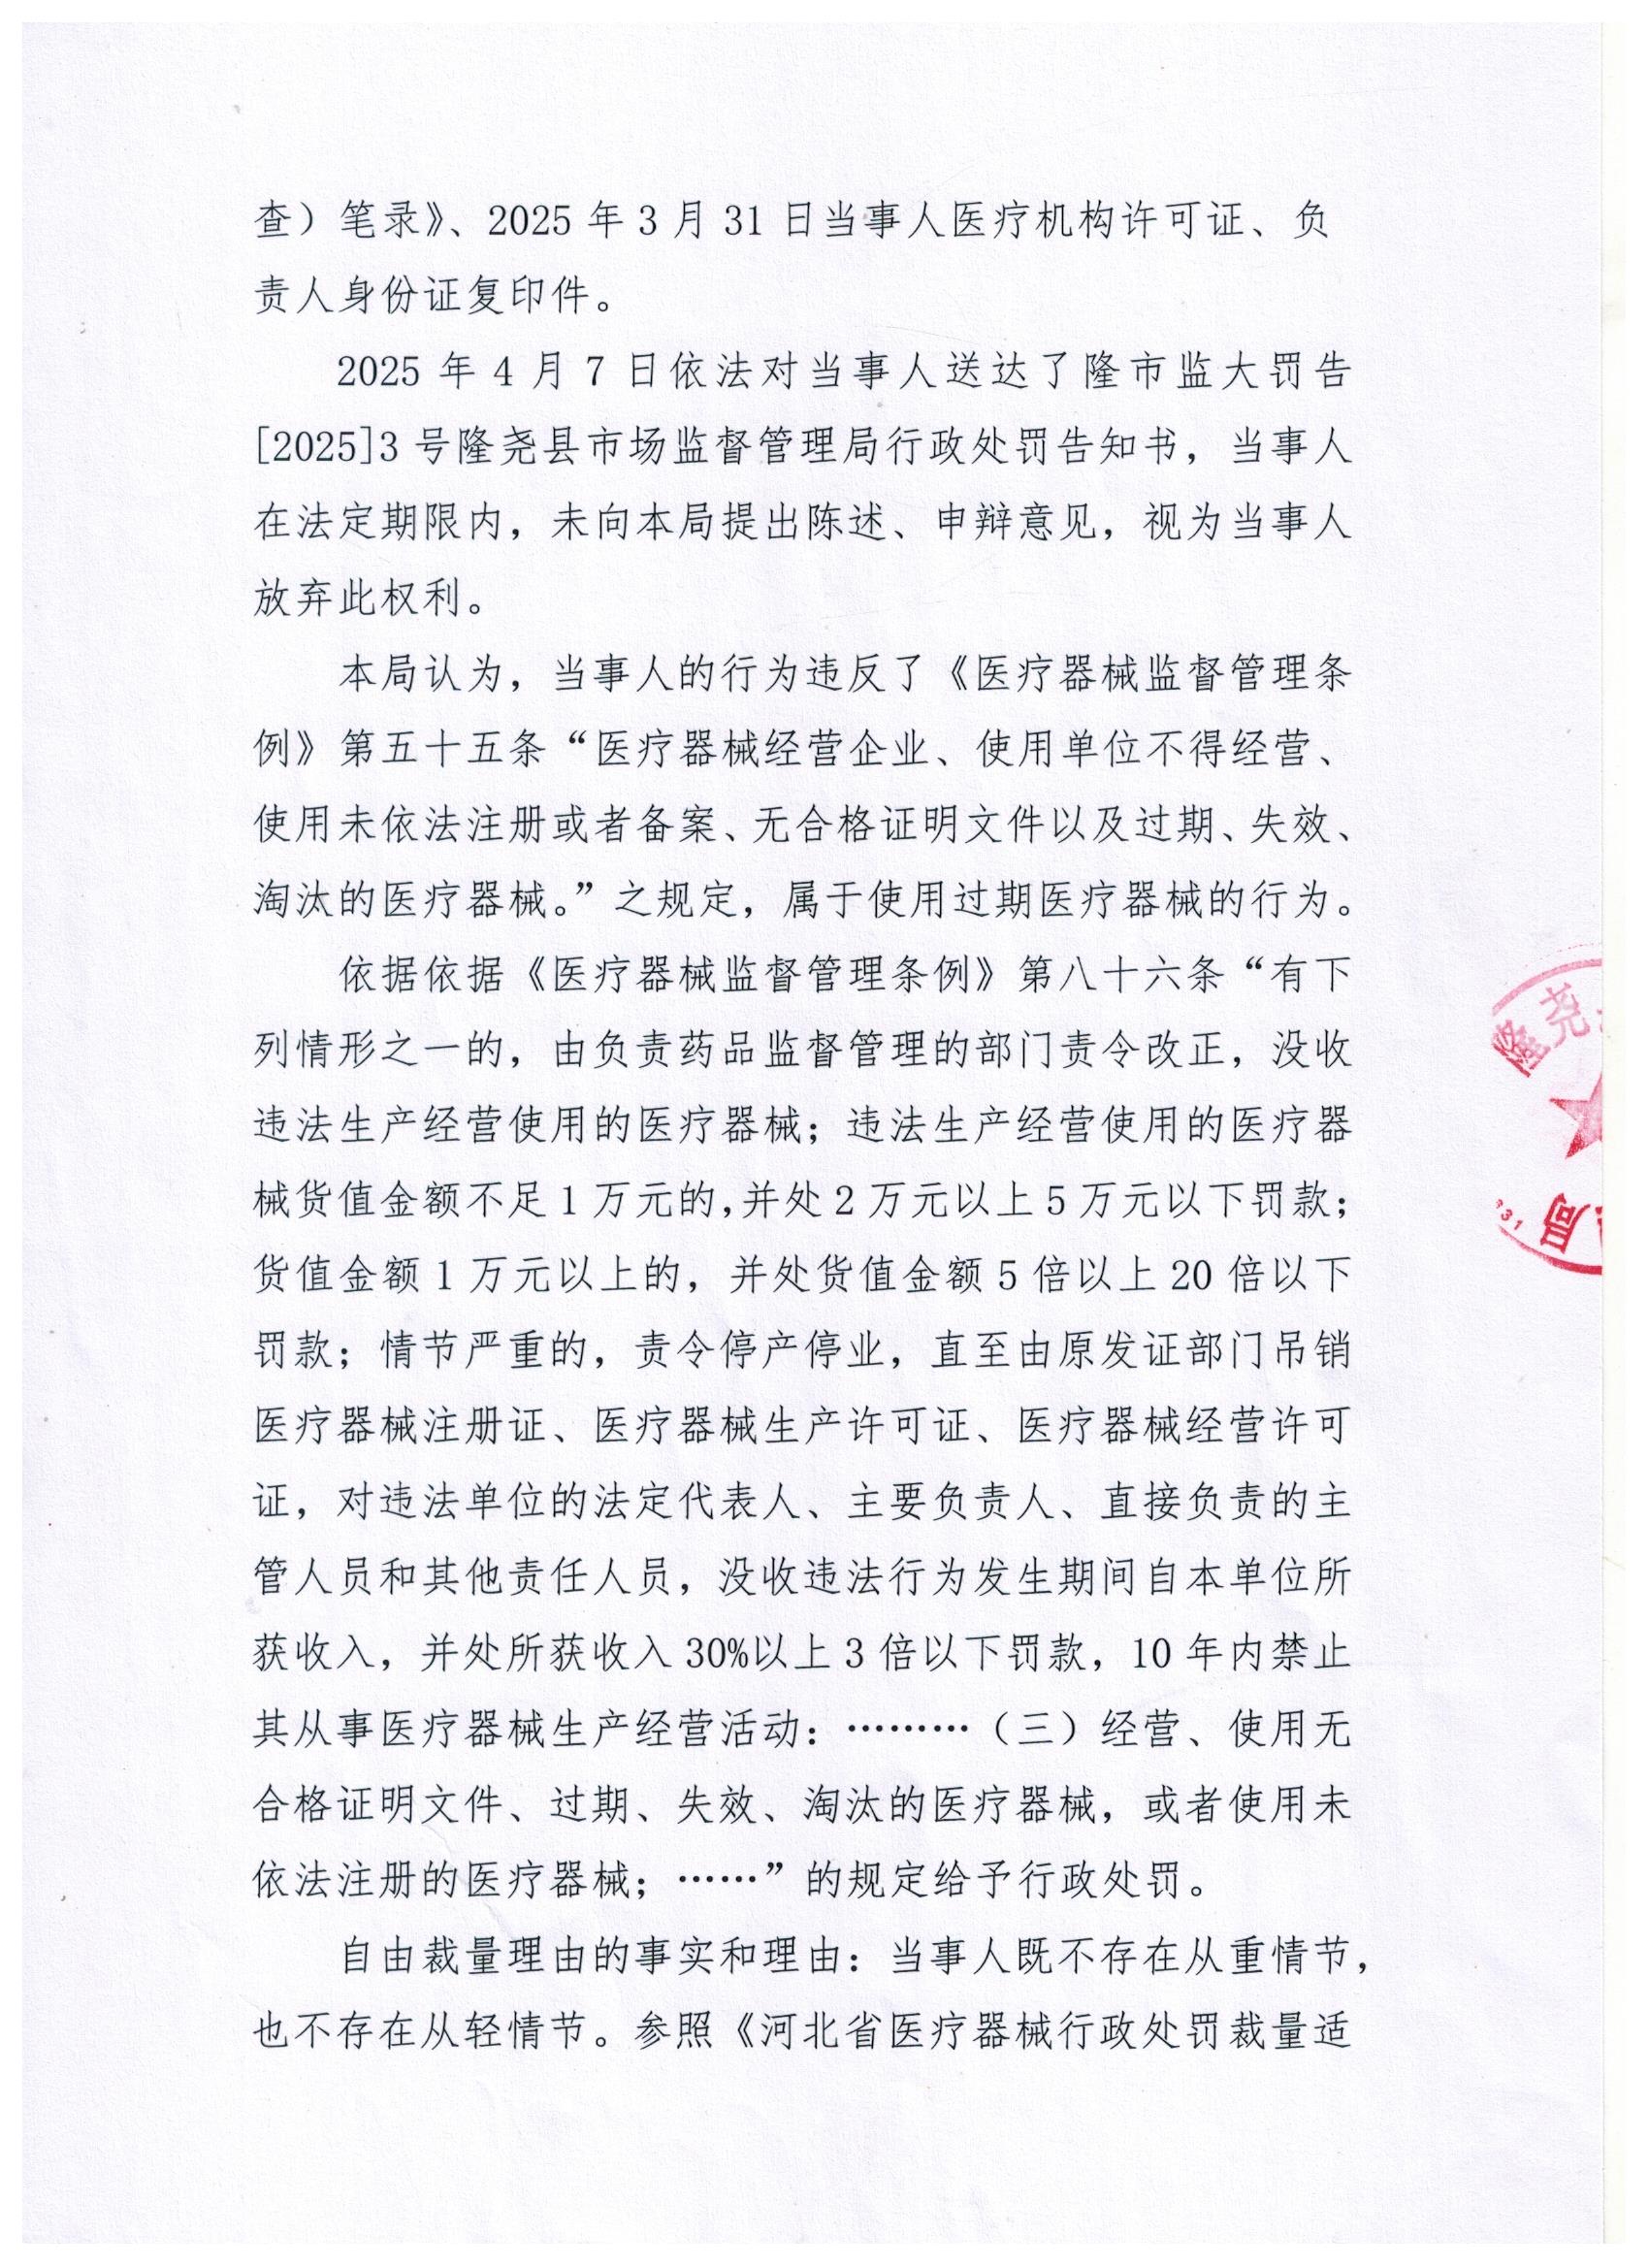 查）笔录》、2025 年 3 月 31 日当事人医疗机构许可证、负
责人身份证复印件。
2025 年 4 月 7 日依法对当事人送达了隆市监大罚告
[2025]3 号隆尧县市场监督管理局行政处罚告知书，当事人
在法定期限内，未向本局提出陈述、申辩意见，视为当事人
放弃此权利。
本局认为，当事人的行为违反了《医疗器械监督管理条
例》第五十五条“医疗器械经营企业、使用单位不得经营、
使用未依法注册或者备案、无合格证明文件以及过期、失效、
淘汰的医疗器械。”之规定，属于使用过期医疗器械的行为。
依据依据《医疗器械监督管理条例》第八十六条“有下
列情形之一的，由负责药品监督管理的部门责令改正，没收
违法生产经营使用的医疗器械；违法生产经营使用的医疗器
械货值金额不足 1 万元的，并处 2 万元以上 5 万元以下罚款；
货值金额 1 万元以上的，并处货值金额 5 倍以上 20 倍以下
罚款；情节严重的，责令停产停业，直至由原发证部门吊销
医疗器械注册证、医疗器械生产许可证、医疗器械经营许可
证，对违法单位的法定代表人、主要负责人、直接负责的主
管人员和其他责任人员，没收违法行为发生期间自本单位所
获收入，并处所获收入 30%以上 3 倍以下罚款，10 年内禁止
其从事医疗器械生产经营活动：………（三）经营、使用无
合格证明文件、过期、失效、淘汰的医疗器械，或者使用未
依法注册的医疗器械；……”的规定给予行政处罚。
自由裁量理由的事实和理由：当事人既不存在从重情节，
也不存在从轻情节。参照《河北省医疗器械行政处罚裁量适
隆尧
局
31